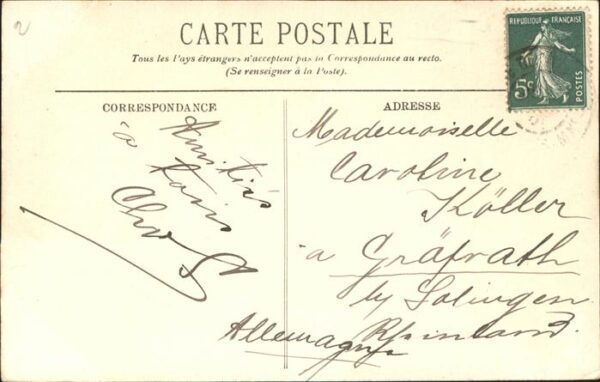 2
CARTE POSTALE
Tous les Pays étrangers n'acceptent pas la Correspondance au recto.
(Se renseigner à la Poste).
REPUBLIQUE FRANÇAISE
5c
POSTES
CORRESPONDANCE
Amitiés
à
ADRESSE
Mademoiselle
Caroline
Köller
à Gräfrath
by Solingen
Rheinland.
Allemagne